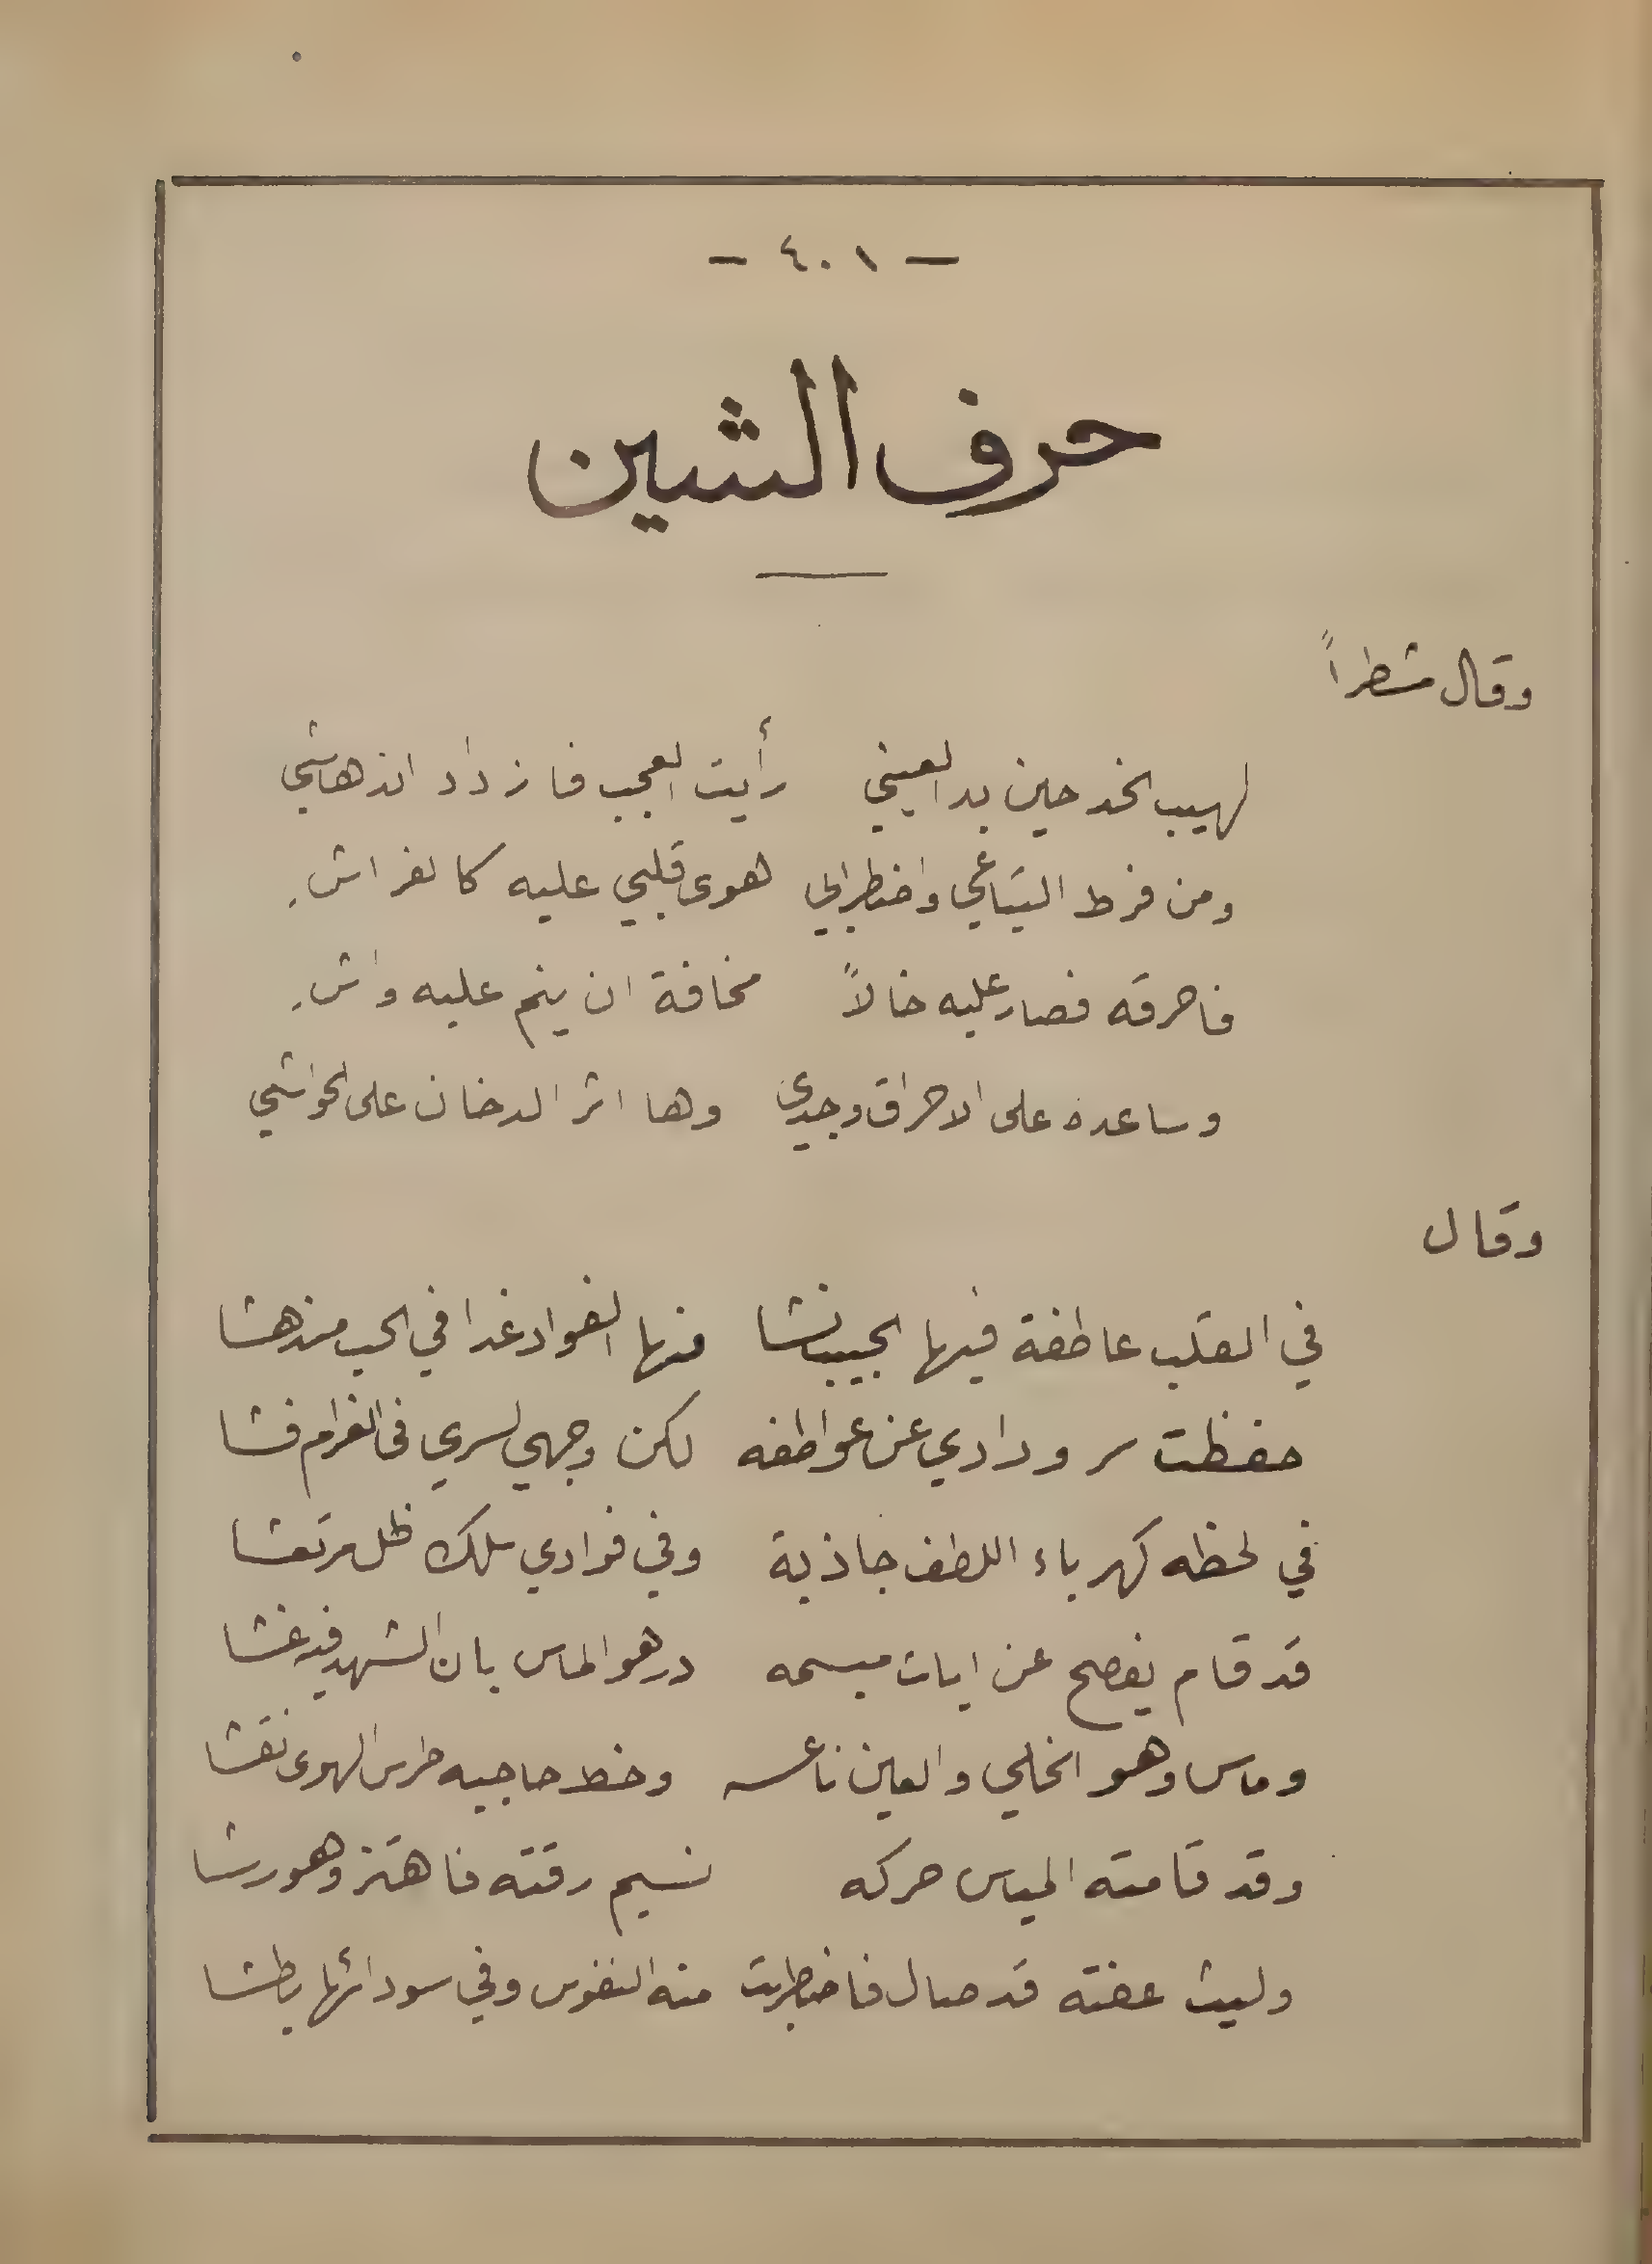 - ٤٠١ -
حرف الشين
وقال مشطراً
لهيب الخد حين بدا لعيني رأيت العجب فازداد انذهاشي
ومن فرط التياعي واضطرابي هوى قلبي عليه كالفراشِ
فاحرقه فصار عليه خالاً مخافة ان ينم عليه واشِ
وساعده على الاحراق وجدي وها اثر الدخان على الحواشي
وقال
في القلب عاطفة فيها الحبيب نشا منها الفواد غدا في الحب منذهشا
حفظت سر ودادي عن عواطفه لكن وجهي لسري في الغرام فشا
في لحظه كهرباء اللطف جاذبة وفي فوادي سلك ظل مرتعشا
قد قام يفصح عن ايات مبسمه در هو الماس بان الشهد فيه غشا
وماس وهو الخلي والعين ناعسه وخط حاجبيه طرس الهوى نقشا
وقد قامته المياس حركه نسيم رقته فاهتز وهو رشا
وليث عفته قد صال فاضطربت منه النفوس وفي سودائها بطشا